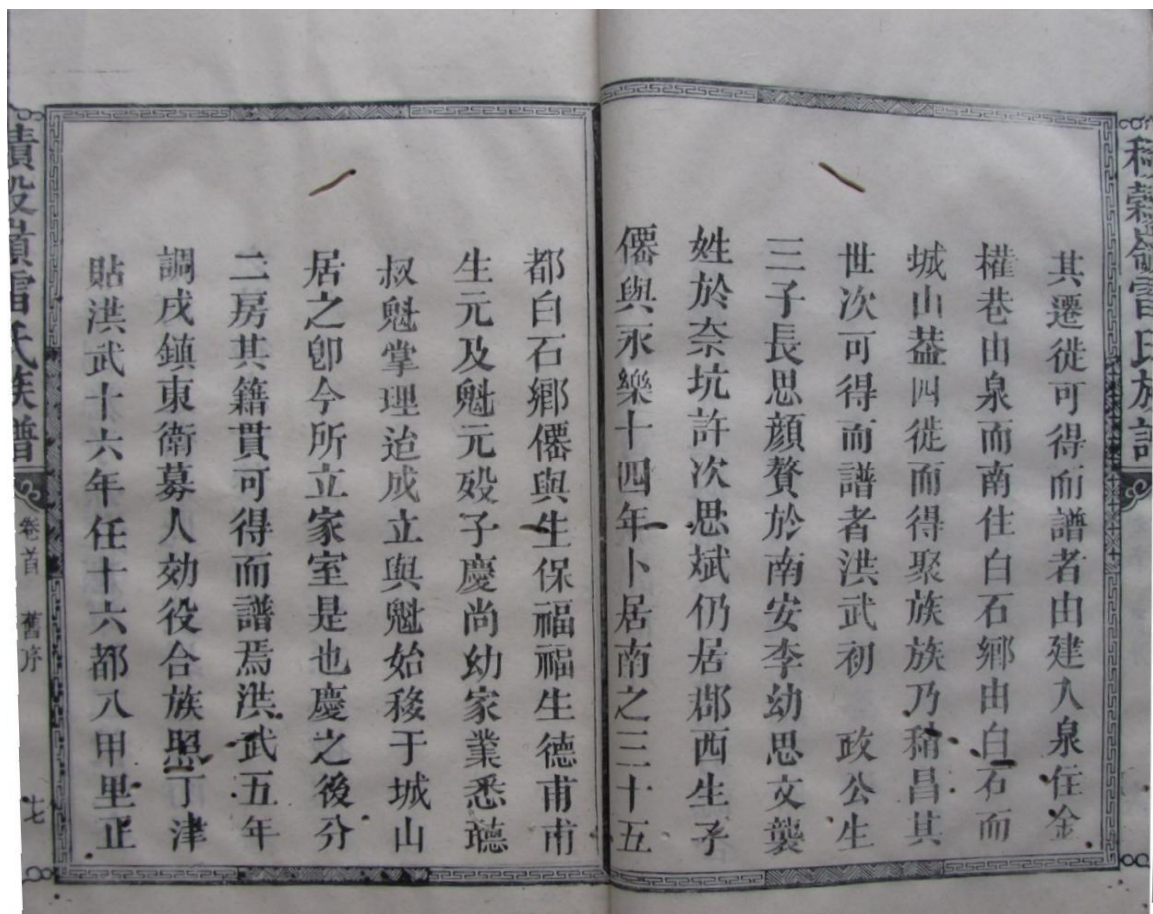 積穀嶺雷氏族譜
其遷徙可得而譜者由建入泉住金
權巷由泉而南住白石鄉由白石而
城山葢四徙而得聚族族乃稍昌其
世次可得而譜者洪武初 政公生
三子長思顔贅於南安李幼思文襲
姓於奈坑許次思斌仍居郡西生子
僊與永樂十四年卜居南之三十五
都白石鄉僊與生保福福生德甫甫
生元及魁元殁子慶尚幼家業悉聽
叔魁掌理迨成立與魁始移于城山
居之卽今所立家室是也慶之後分
二房其籍貫可得而譜焉洪武五年
調戍鎮東衛募人効役合族照丁津
貼洪武十六年任十六都八甲里正
積穀嶺雷氏族譜
卷首 舊序
七